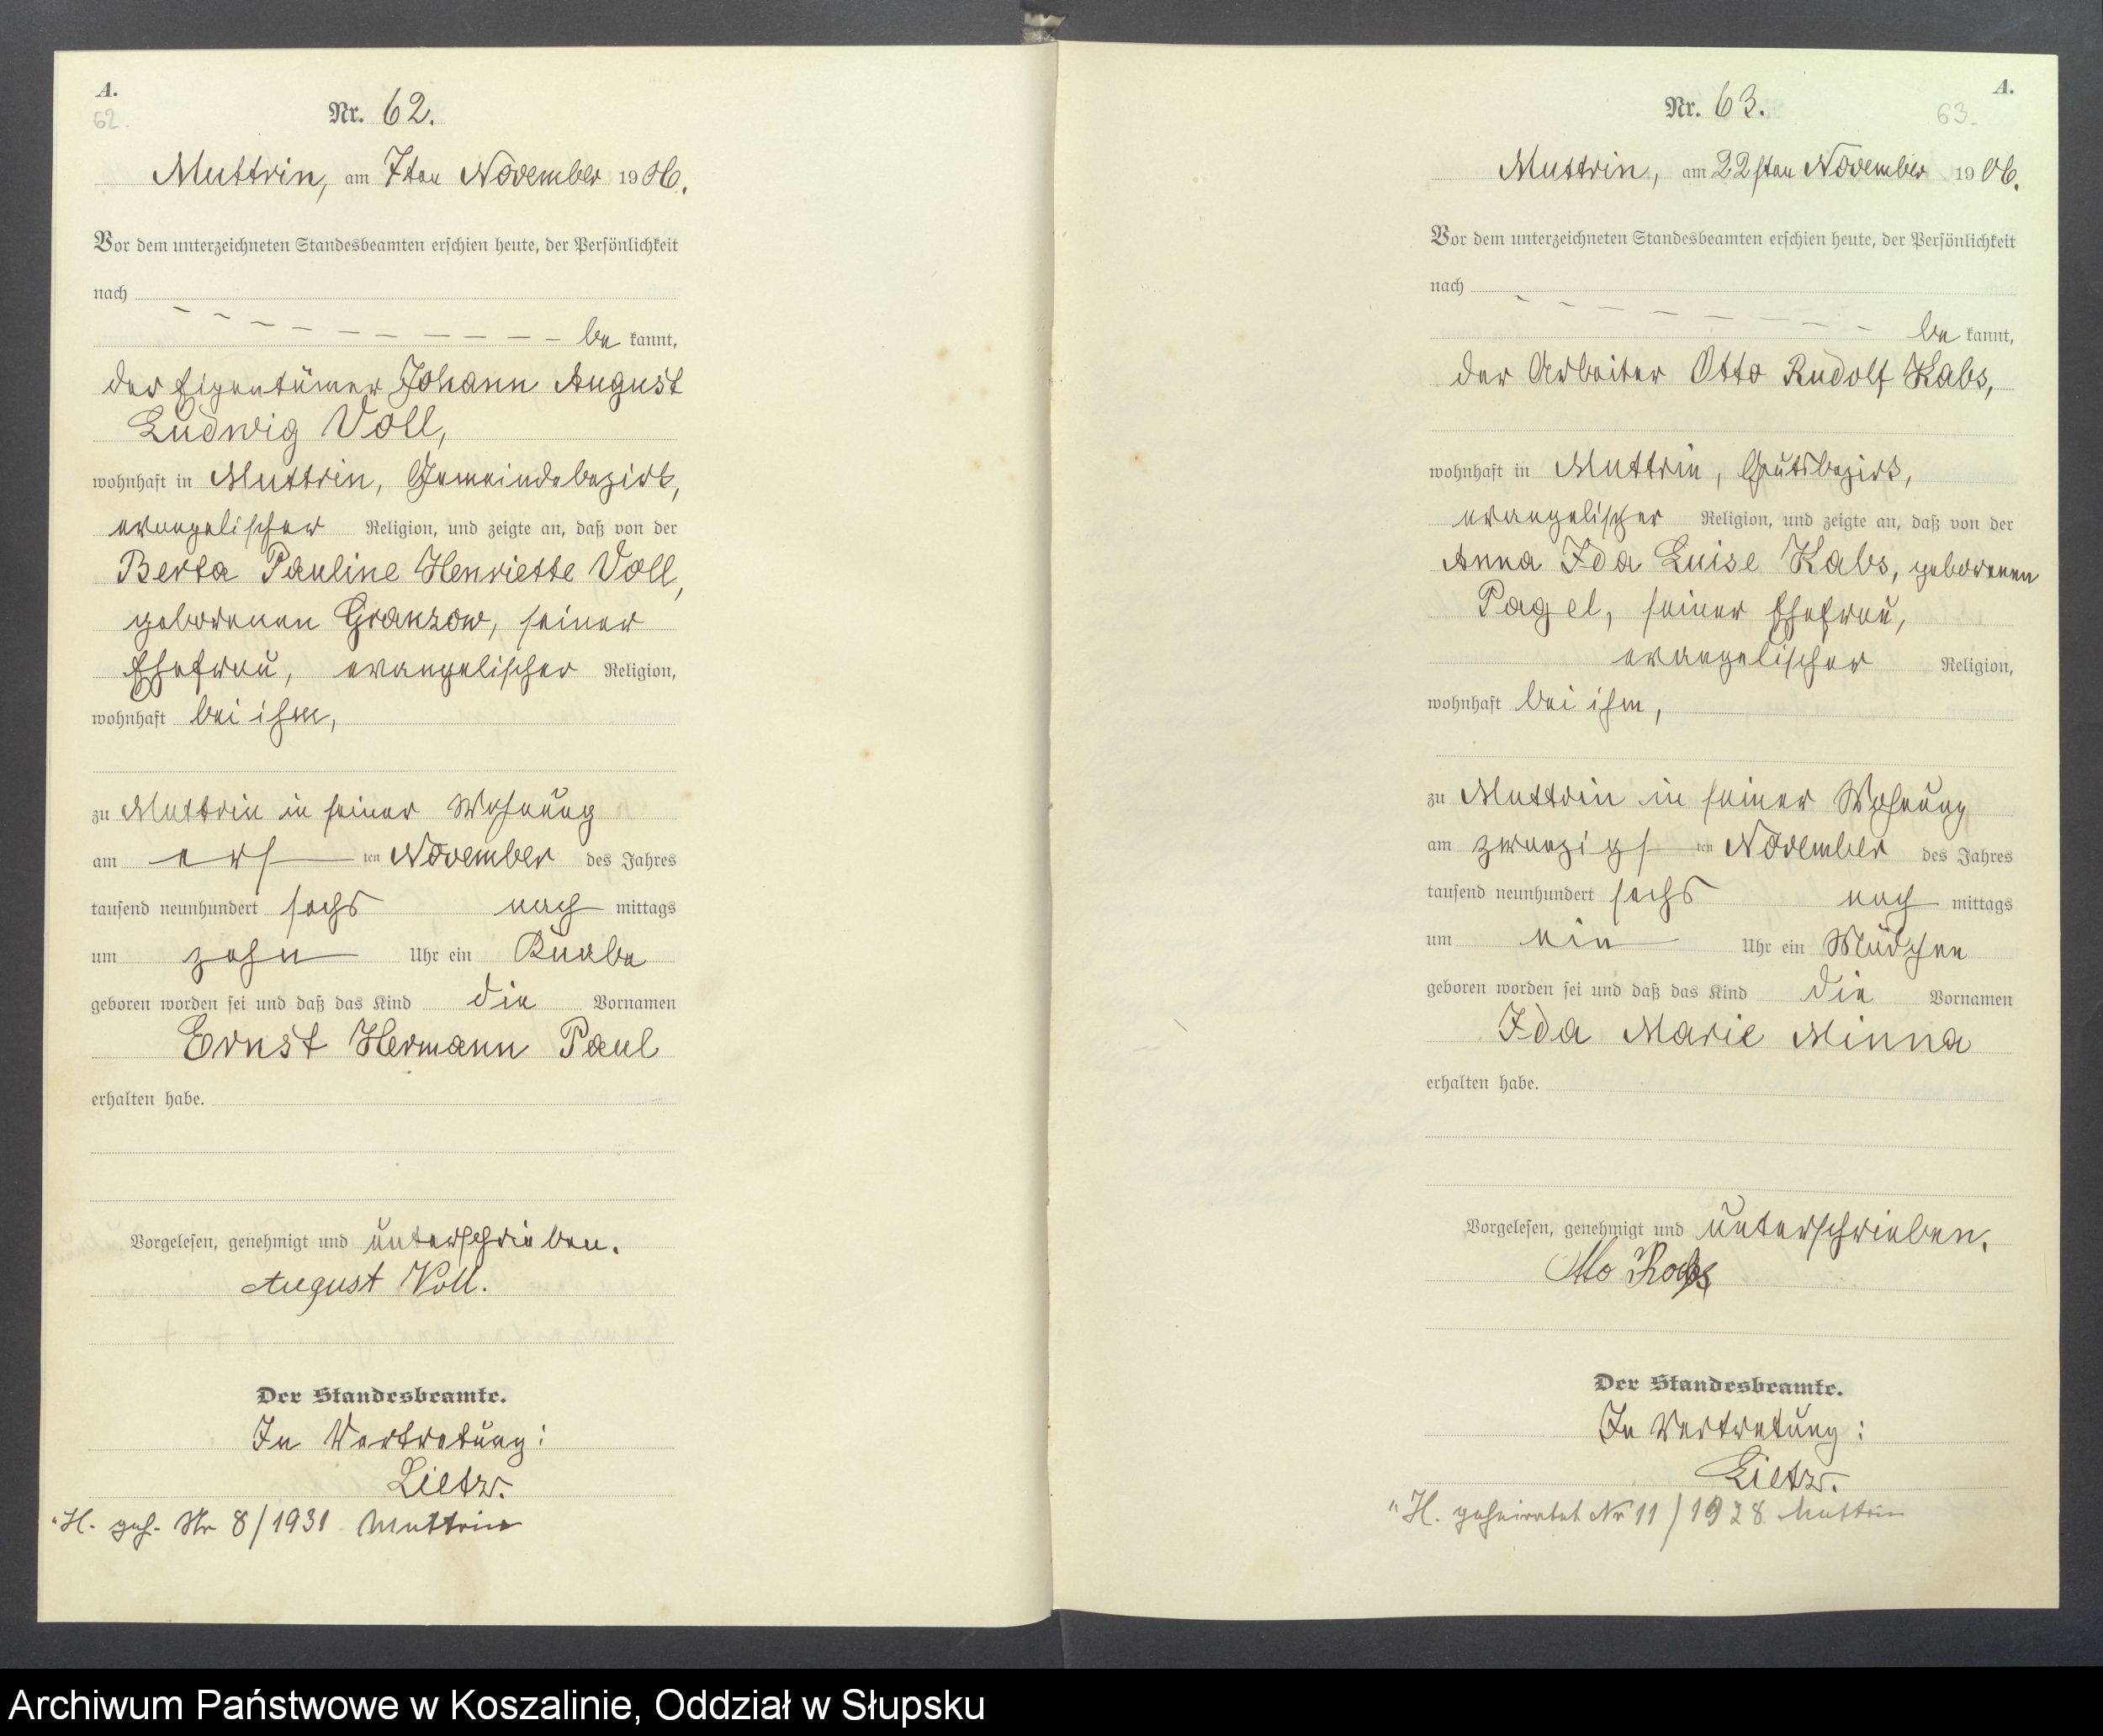 A.
62.
Nr. 62.
Muttrin, am 7ten November 1906.
Vor dem unterzeichneten Standesbeamten erschien heute, der Persönlichkeit
nach
be kannt,
der Eigentümer Johann August
Ludwig Voll,
wohnhaft in Muttrin, Gemeindebezirk,
evangelischer Religion, und zeigte an, daß von der
Berta Pauline Henriette Voll,
geborenen Granzow, seiner
Ehefrau, evangelischer Religion,
wohnhaft bei ihm,
zu Muttrin in seiner Wohnung
am ers ten November des Jahres
tausend neunhundert sechs nach mittags
um zehn Uhr ein Knabe
geboren worden sei und daß das Kind die Vornamen
Ernst Hermann Paul
erhalten habe.
Vorgelesen, genehmigt und unterschrieben.
August Voll.
Der Standesbeamte.
In Vertretung:
Lietzw.
"H. geh. Nr 8/1931 Muttrin
A.
63.
Nr. 63.
Muttrin, am 22sten November 1906.
Vor dem unterzeichneten Standesbeamten erschien heute, der Persönlichkeit
nach
be kannt,
der Arbeiter Otto Rudolf Kabs,
wohnhaft in Muttrin, Gutsbezirk,
evangelischer Religion, und zeigte an, daß von der
Anna Ida Luise Kabs, geborenen
Pagel, seiner Ehefrau,
evangelischer Religion,
wohnhaft bei ihm,
zu Muttrin in seiner Wohnung
am zwanzigs ten November des Jahres
tausend neunhundert sechs nach mittags
um ein Uhr ein Mädchen
geboren worden sei und daß das Kind die Vornamen
Ida Marie Minna
erhalten habe.
Vorgelesen, genehmigt und unterschrieben.
Otto Kabs
Der Standesbeamte.
In Vertretung:
Lietzw.
"H. geheiratet Nr 11/1928 Muttrin
Archiwum Państwowe w Koszalinie, Oddział w Słupsku